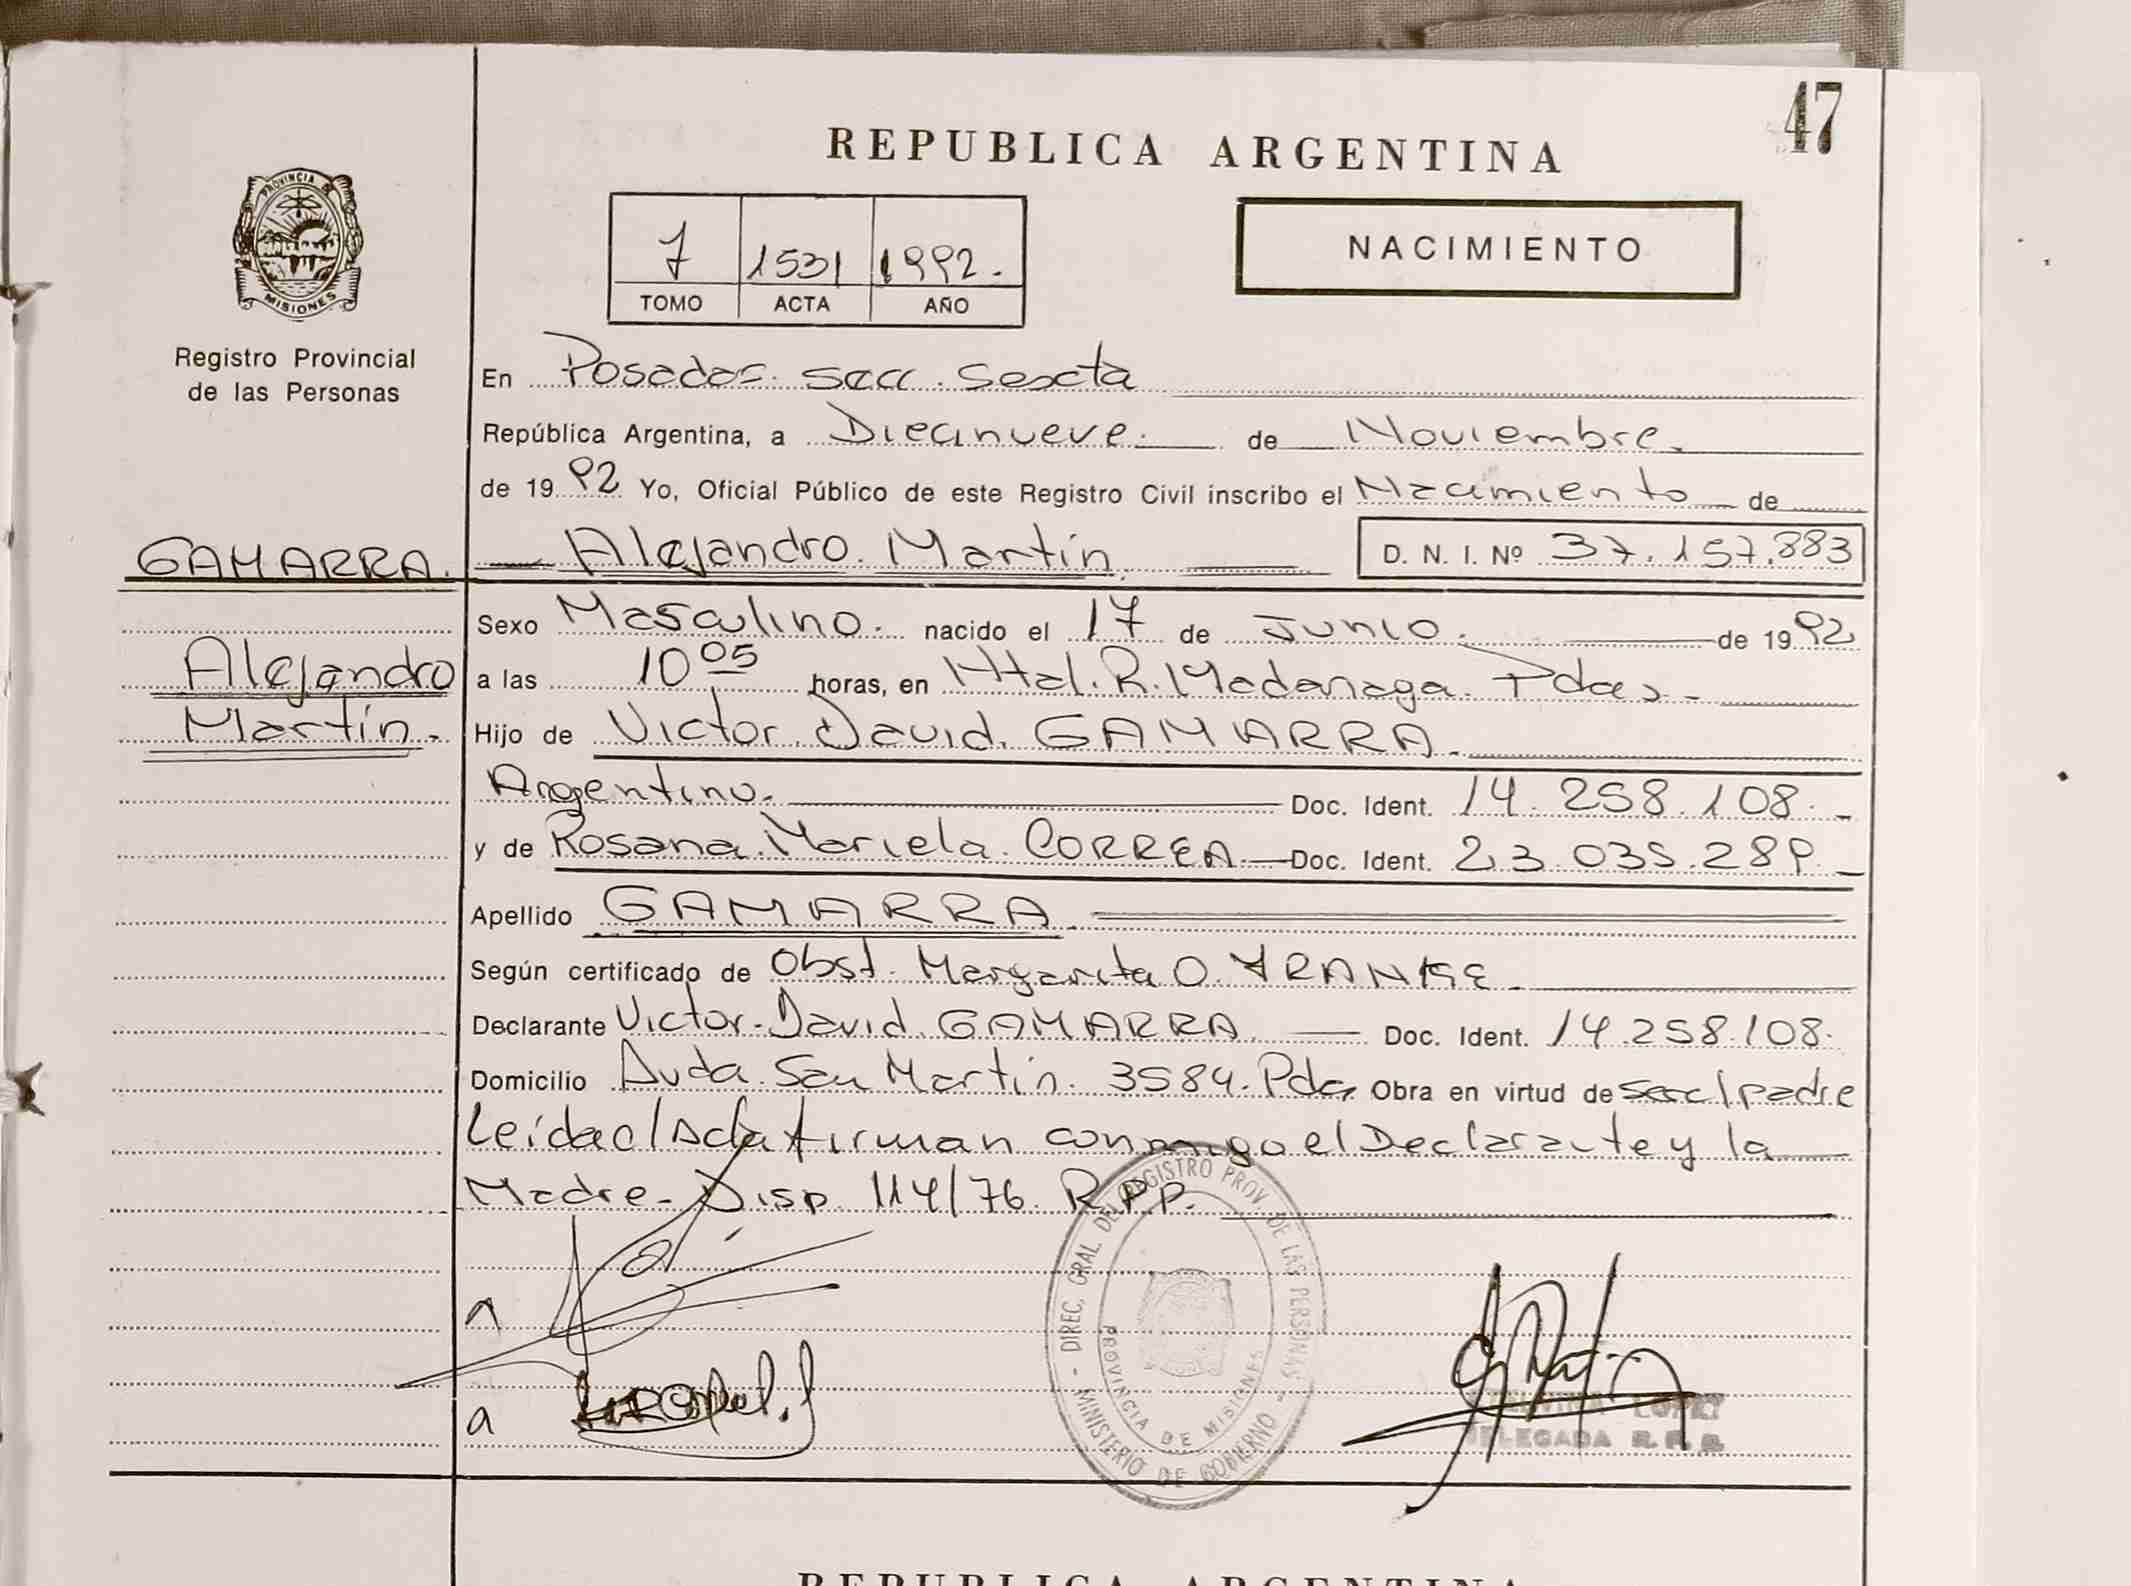 47
REPUBLICA ARGENTINA
PROVINCIA DE
MISIONES
Registro Provincial
de las Personas
7 1531 1992.
TOMO ACTA AÑO
NACIMIENTO
En Posadas. secc. Sexta
República Argentina, a Diecinueve. de Noviembre.
de 1992. Yo, Oficial Público de este Registro Civil inscribo el Nacimiento de
GAMARRA. Alejandro. Martín. D. N. I. Nº 37.157.883
Alejandro
Martín.
Sexo Masculino. nacido el 17 de Junio. de 1992
a las 10 05 horas, en Htal. R. Madariaga. Pdas.
Hijo de Victor. David. GAMARRA.
Argentino. Doc. Ident. 14.258.108.
y de Rosana. Mariela. CORREA Doc. Ident. 23.035.289
Apellido GAMARRA
Según certificado de Obst. Margarita O.
Declarante Victor. David. GAMARRA. Doc. Ident. 14.258.108.
Domicilio Avda. San Martín. 3584. Pdas. Obra en virtud de padre
Leída el Acta firman conmigo el Declarante y la
Madre. Disp. 114/76. R.P.P.
DIREC. GRAL. DEL REGISTRO PROV. DE LAS PERSONAS
MINISTERIO DE GOBIERNO
PROVINCIA DE MISIONES
LOPEZ
DELEGADA R. P. P.
REPUBLICA ARGENTINA